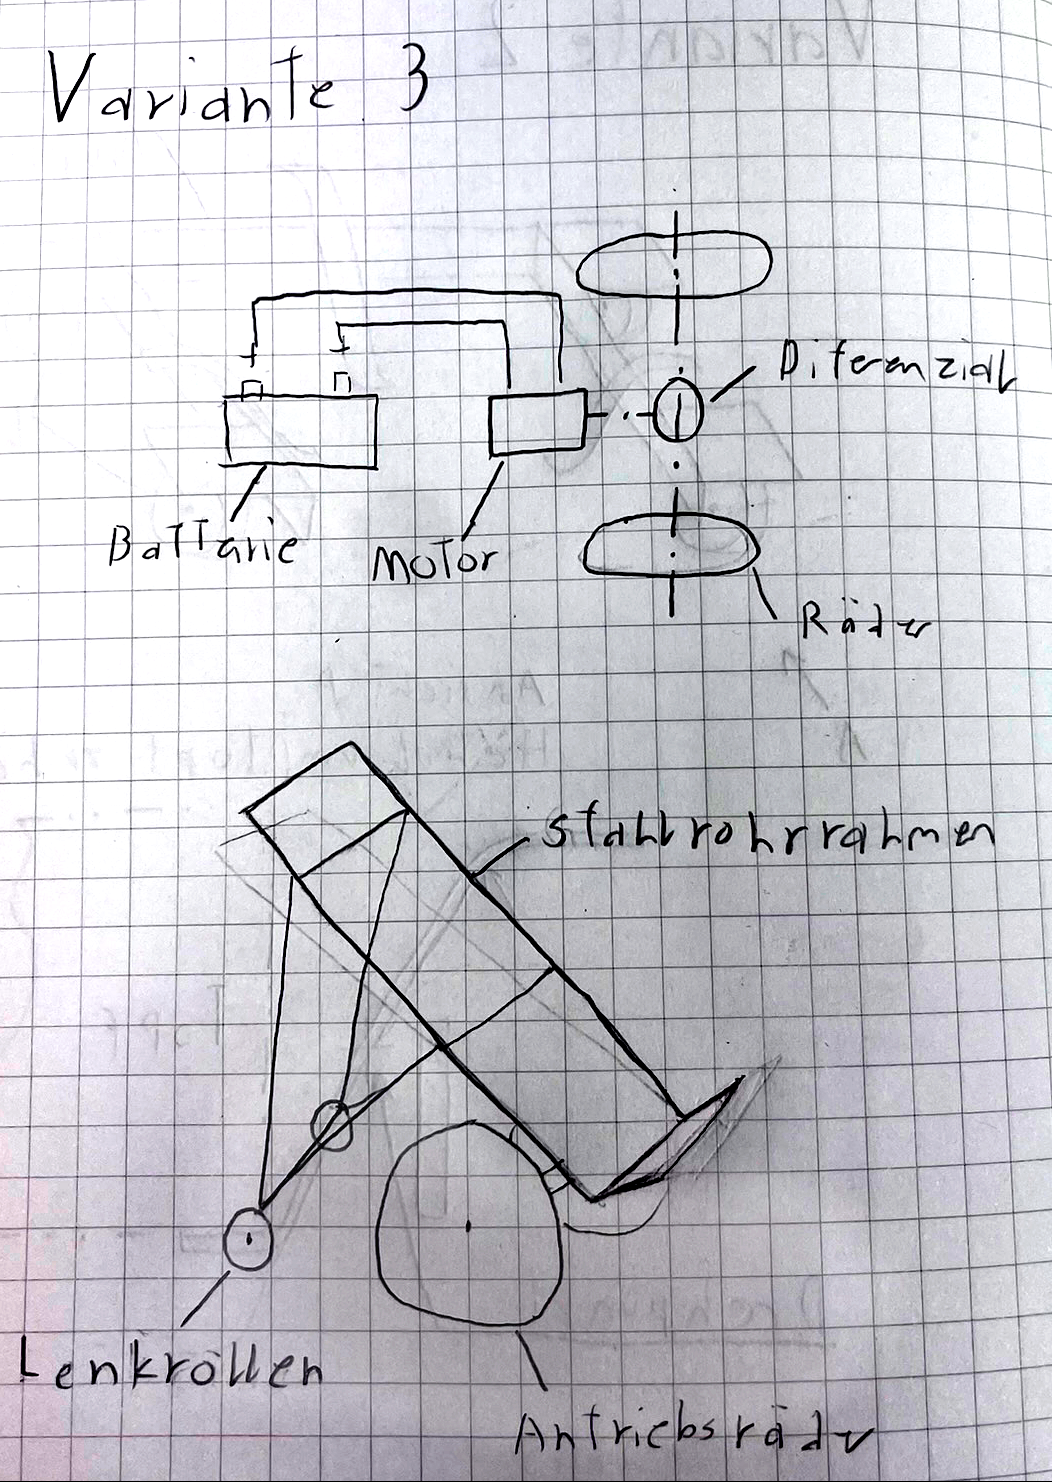 Variante 3
Diferenzial
+ +
Battarie
Motor
Räder
Stahlrohrrahmen
Lenkrollen
Antriebsräder